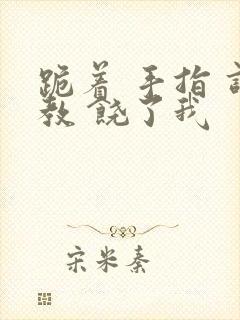 跪着 手指
教 饶了我
宋米秦